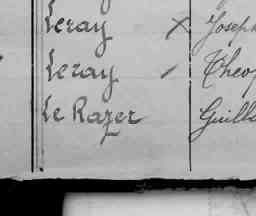 Leray × Joseph
Leray / Théop
Le Razer Guill